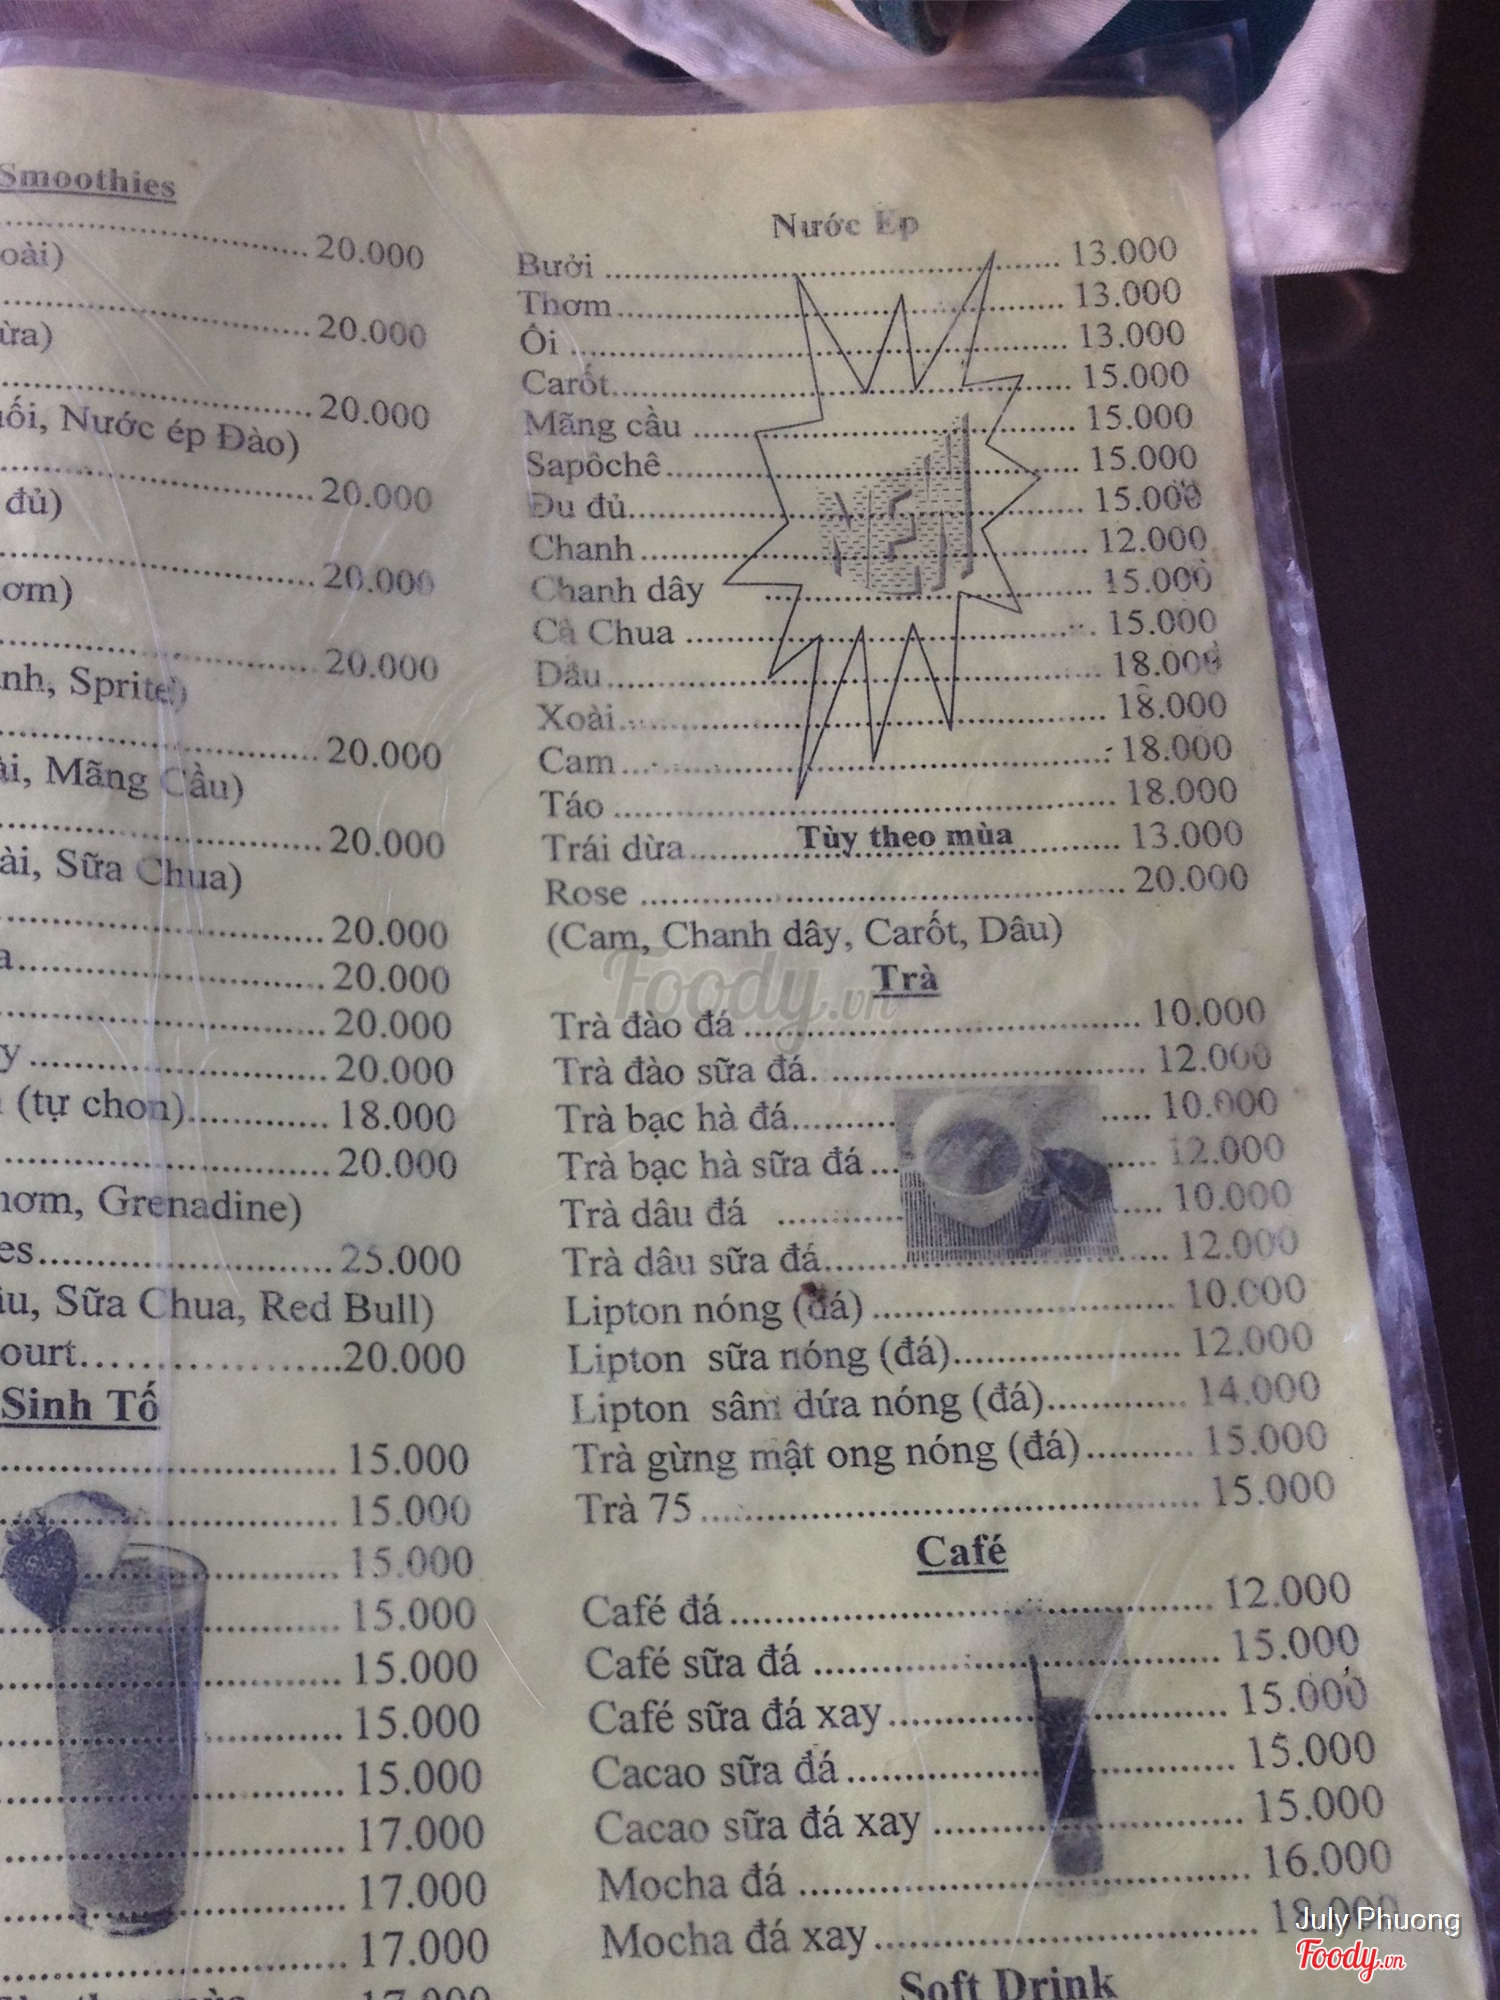 Smoothies
20.000
oài)
20.000
ừa)
20.000
uối, Nước ép Đào)
20.000
đủ)
20.000
ơm)
20.000
nh, Sprite)
20.000
ài, Mãng Cầu)
20.000
ài, Sữa Chua)
20.000
a 20.000
20.000
y 20.000
(tự chon) 18.000
20.000
hơm, Grenadine)
es 25.000
âu, Sữa Chua, Red Bull)
ourt 20.000
Sinh Tố
15.000
15.000
15.000
15.000
15.000
15.000
15.000
17.000
17.000
17.000
17.000
Nước Ép
Bưởi 13.000
Thơm 13.000
Ổi 13.000
Carốt 15.000
Mãng cầu 15.000
Sapôchê 15.000
Đu đủ 15.000
Chanh 12.000
Chanh dây 15.000
Cà Chua 15.000
Dâu 18.000
Xoài 18.000
Cam 18.000
Táo 18.000
Trái dừa Tùy theo mùa 13.000
Rose 20.000
(Cam, Chanh dây, Carốt, Dâu)
Trà
Trà đào đá 10.000
Trà đào sữa đá 12.000
Trà bạc hà đá 10.000
Trà bạc hà sữa đá 12.000
Trà dâu đá 10.000
Trà dâu sữa đá 12.000
Lipton nóng (đá) 10.000
Lipton sữa nóng (đá) 12.000
Lipton sâm dứa nóng (đá) 14.000
Trà gừng mật ong nóng (đá) 15.000
Trà 75 15.000
Café
Café đá 12.000
Café sữa đá 15.000
Café sữa đá xay 15.000
Cacao sữa đá 15.000
Cacao sữa đá xay 15.000
Mocha đá 16.000
Mocha đá xay 18.000
Soft Drink
Foody.vn
July Phuong
Foody.vn